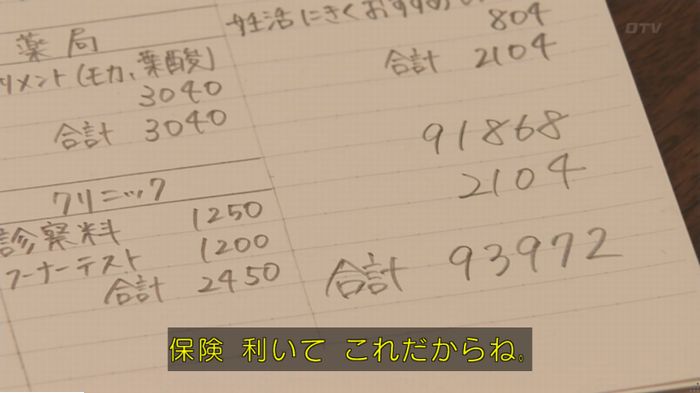 薬局
リメント(モカ、葉酸)
3040
合計 3040
クリニック
診察料 1250
フーナーテスト 1200
合計 2450
妊活にきくおすすめ
804
合計 2104
91868
2104
合計 93972
保険 利いて これだからね。
DTV